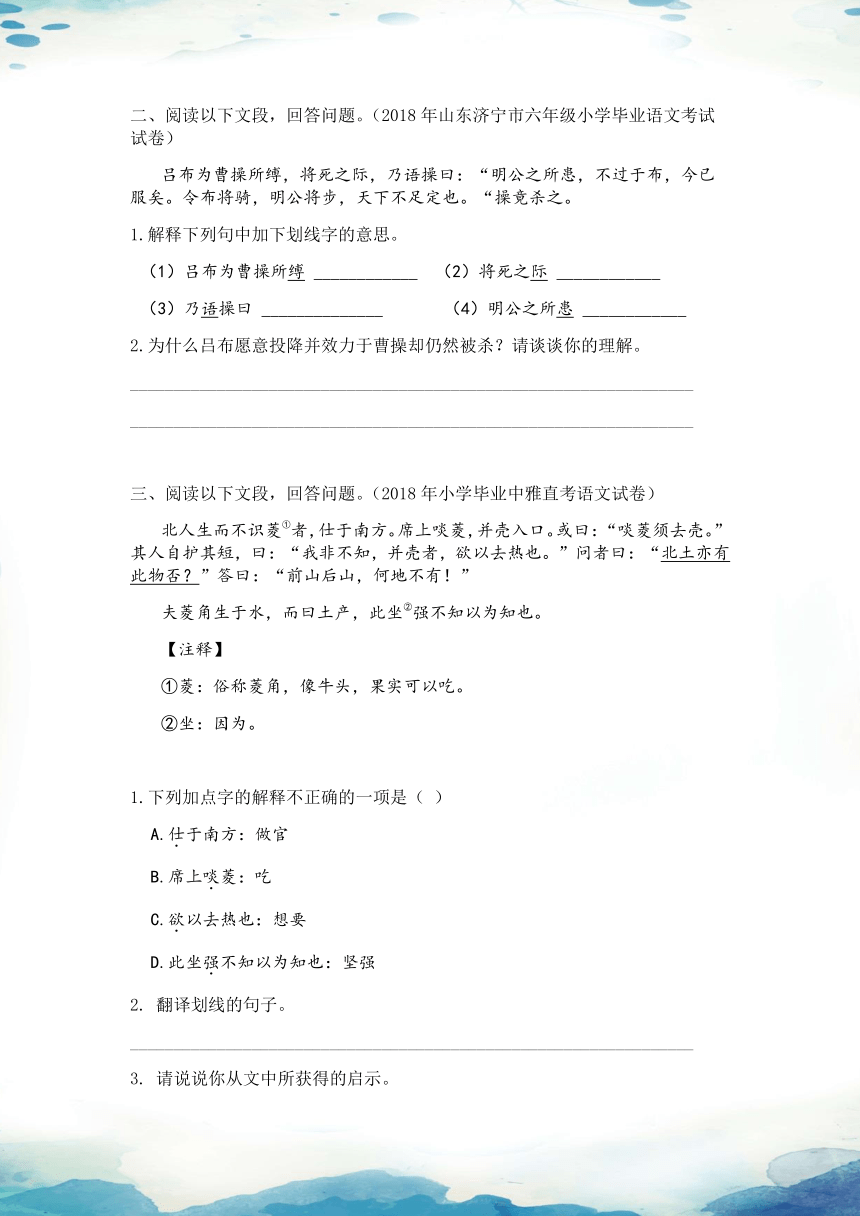 二、阅读以下文段，回答问题。（2018年山东济宁市六年级小学毕业语文考试
试卷）
吕布为曹操所缚，将死之际，乃语操曰：“明公之所患，不过于布，今已
服矣。令布将骑，明公将步，天下不足定也。“操竟杀之。
1.解释下列句中加下划线字的意思。
（1）吕布为曹操所缚 ____________ （2）将死之际 ____________
（3）乃语操曰 ______________ （4）明公之所患 ____________
2.为什么吕布愿意投降并效力于曹操却仍然被杀？请谈谈你的理解。
三、阅读以下文段，回答问题。（2018年小学毕业中雅直考语文试卷）
北人生而不识菱①者，仕于南方。席上啖菱，并壳入口。或曰：“啖菱须去壳。”
其人自护其短，曰：“我非不知，并壳者，欲以去热也。”问者曰：“北土亦有
此物否？”答曰：“前山后山，何地不有！”
夫菱角生于水，而曰土产，此坐②强不知以为知也。
【注释】
①菱：俗称菱角，像牛头，果实可以吃。
②坐：因为。
1.下列加点字的解释不正确的一项是（ ）
A.仕于南方：做官
B.席上啖菱：吃
C.欲以去热也：想要
D.此坐强不知以为知也：坚强
2. 翻译划线的句子。
3. 请说说你从文中所获得的启示。